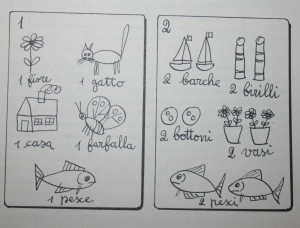 1
1 fiore
1 gatto
1 casa
1 farfalla
1 pexe
2
2 barche
2 birilli
2 bottoni
2 vasi
2 pexi